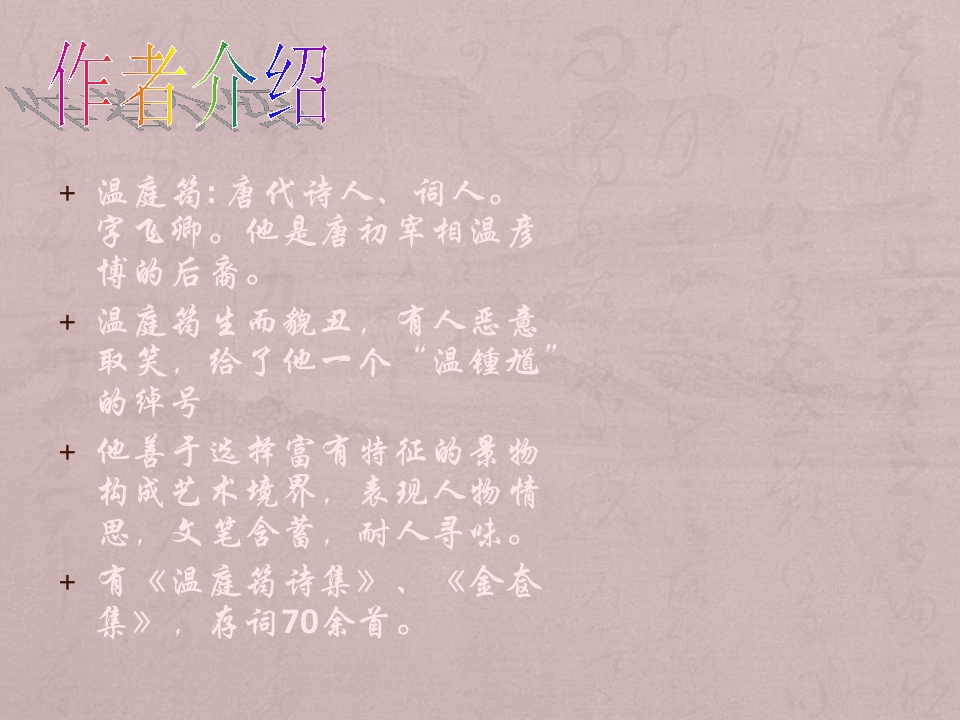 作者介绍
+ 温庭筠：唐代诗人、词人。
字飞卿。他是唐初宰相温彦
博的后裔。
+ 温庭筠生而貌丑，有人恶意
取笑，给了他一个“温锺馗”
的绰号
+ 他善于选择富有特征的景物
构成艺术境界，表现人物情
思，文笔含蓄，耐人寻味。
+ 有《温庭筠诗集》、《金奁
集》，存词70余首。